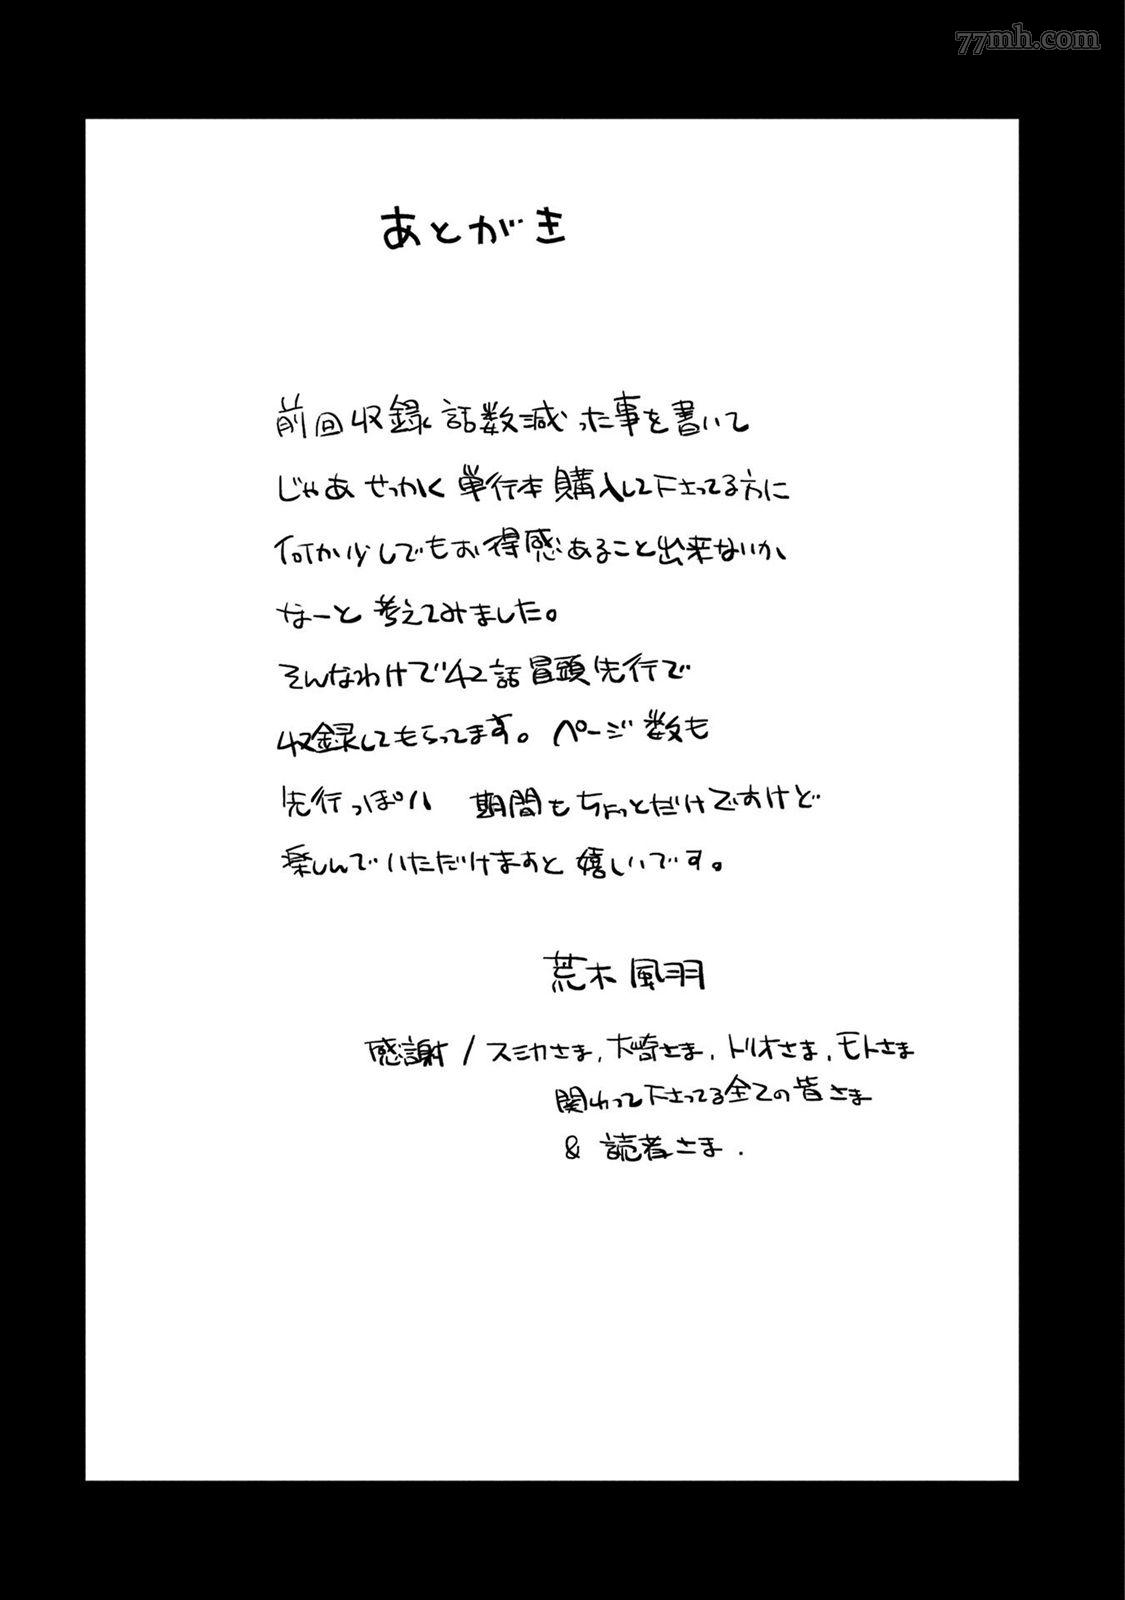 77mh.com
あとがき
前回収録話数減った事を書いて
じゃあせっかく単行本購入して下さってる方に
何か少しでもお得感あること出来ないか、
なーと考えてみました。
そんなわけで42話冒頭先行で
収録してもらってます。ページ数も
先行っぽい 期間もちょっとだけですけど
楽しんでいただけますと嬉しいです。
荒木風羽
感謝/スミカさま,大崎さま,トリオさま,モトさま
関わって下さってる全ての皆さま
&読者さま.